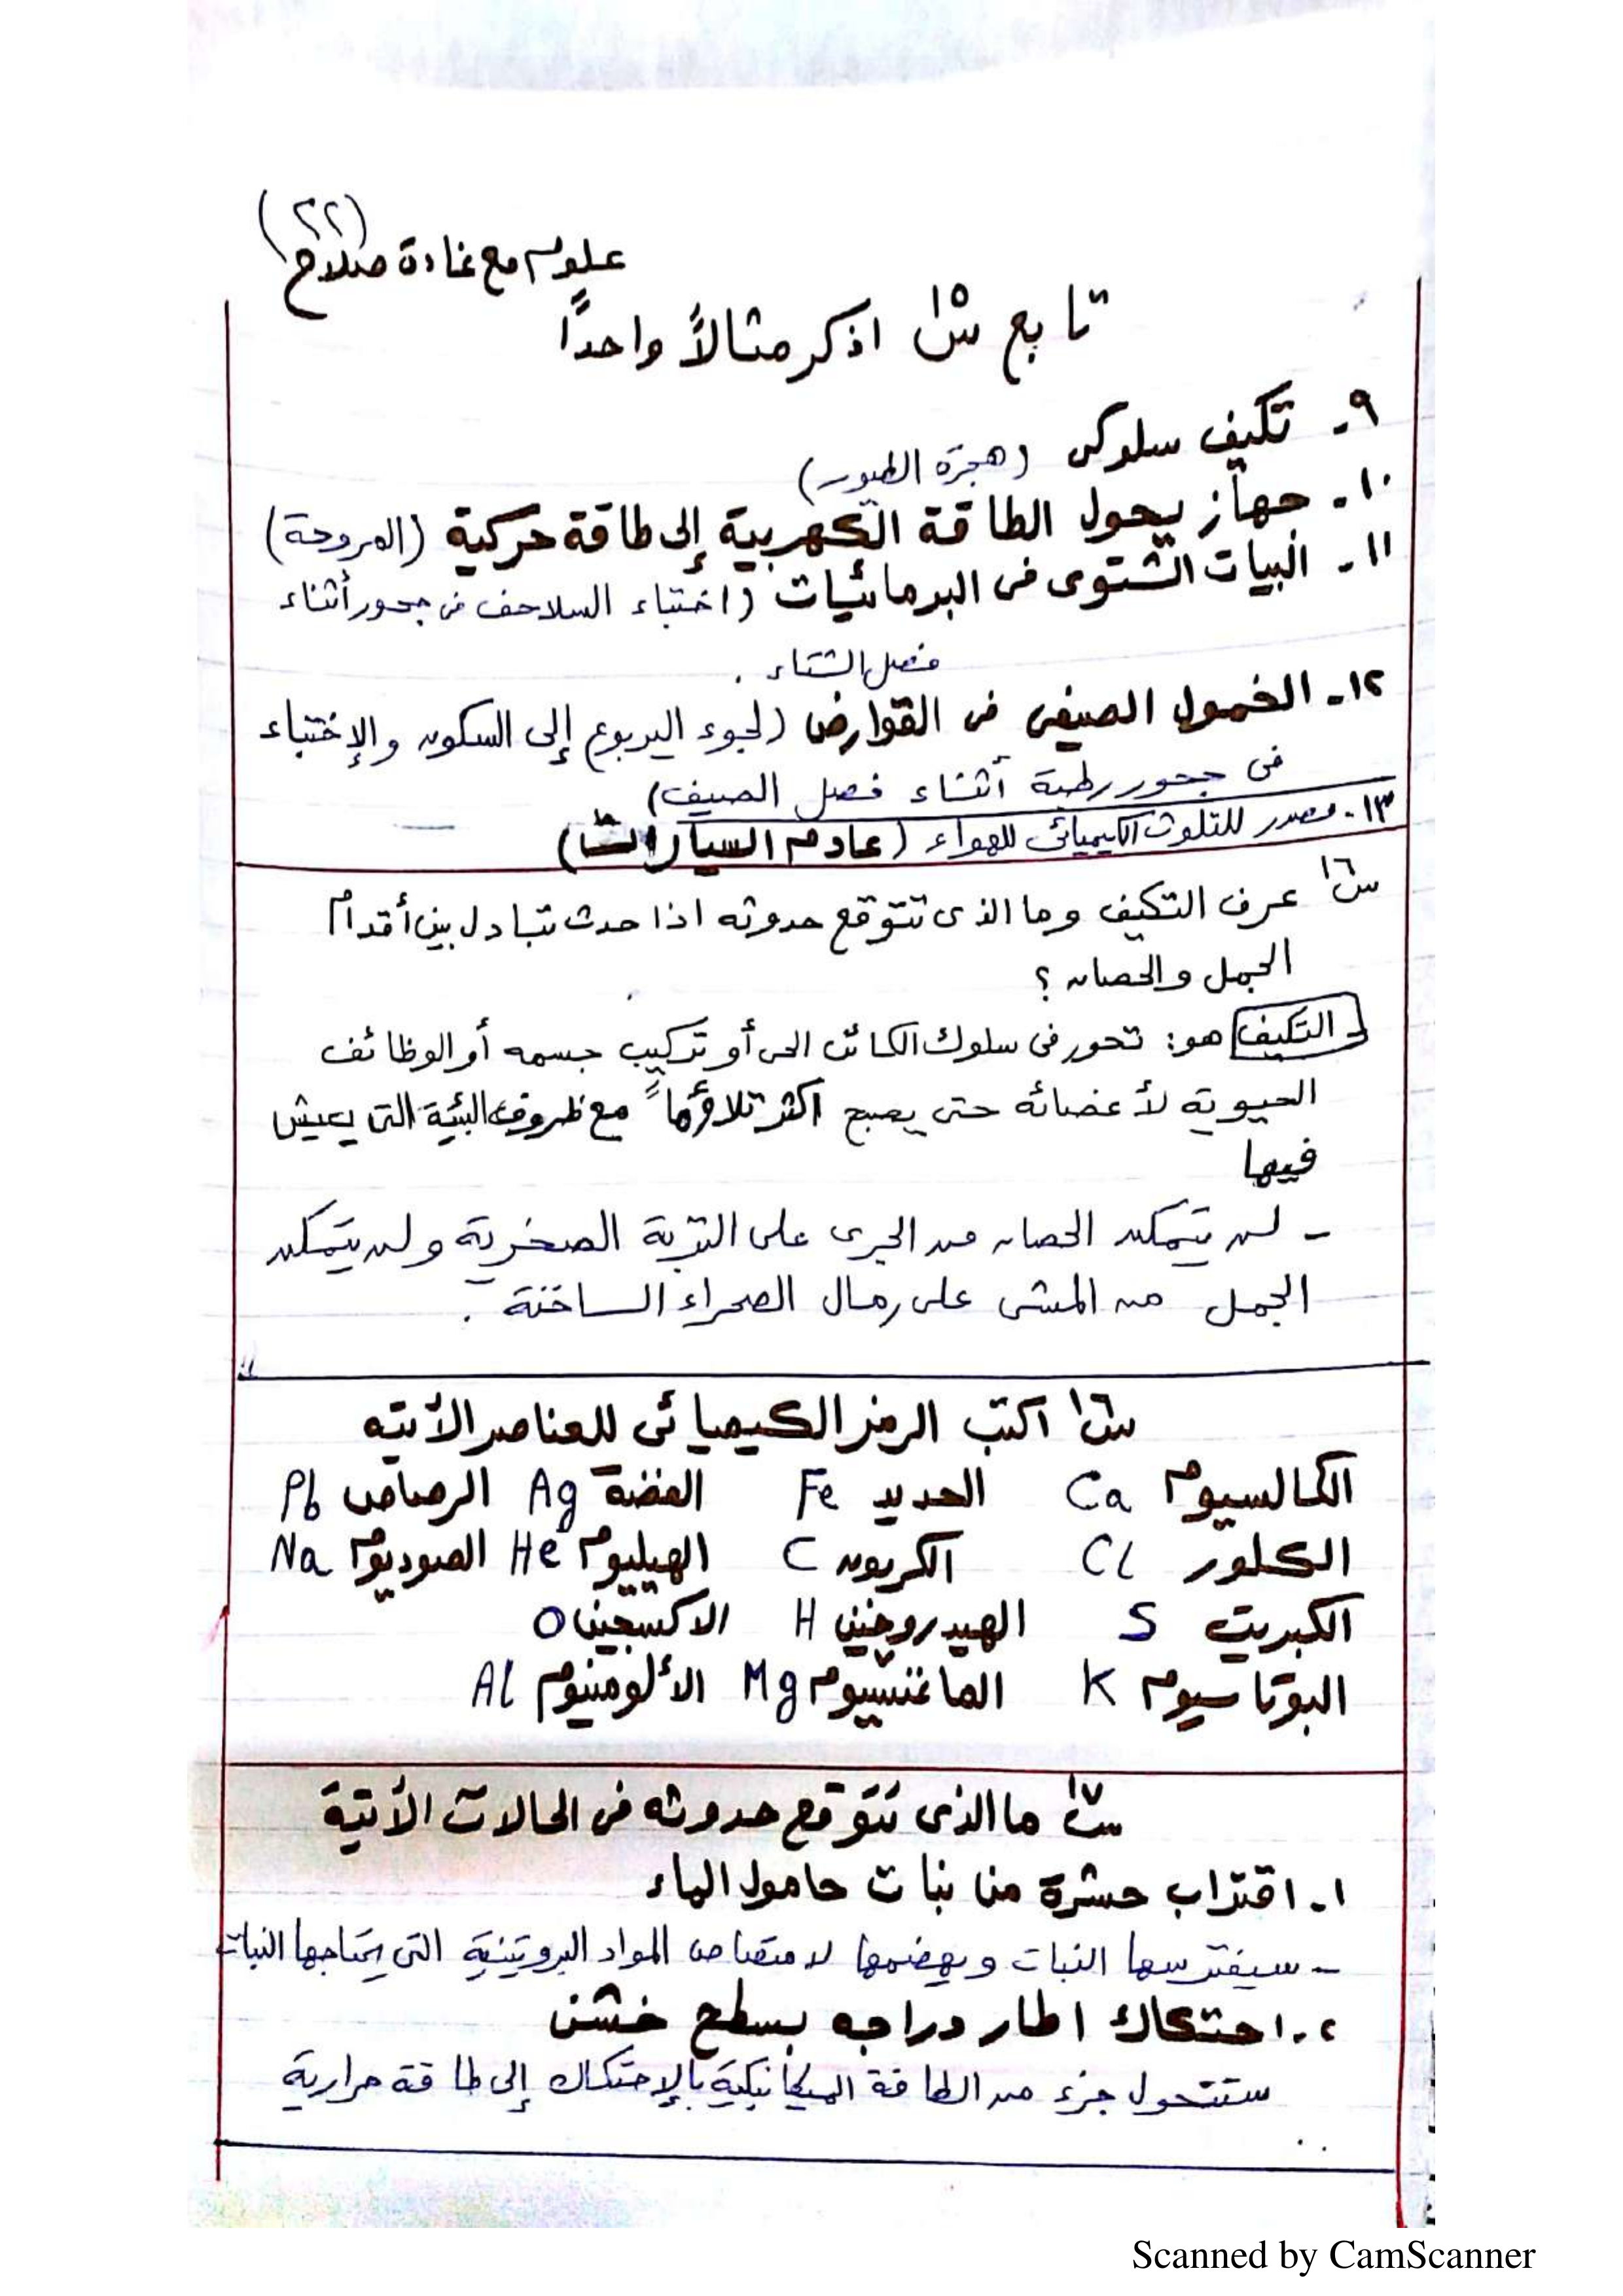 (٢٢)
علوم مع غادة صلاح
تابع س١٥ اذكر مثالاً واحداً
٩- تكيف سلوكى (هجرة الطيور)
١٠- جهاز يحول الطاقة الكهربية إلى طاقة حركية (المروحة)
١١- البيات الشتوى فى البرمائيات (اختباء السلاحف فى جحور أثناء
فصل الشتاء .
١٢- الخمول الصيفى فى القوارض (لجوء اليربوع إلى السكون والإختباء
فى جحور رطبة أثناء فصل الصيف)
١٣- مصدر للتلوث الكيميائى للهواء (عادم السيارات)
س١٦ عرف التكيف وما الذى تتوقع حدوثه اذا حدث تبادل بين أقدام
الجمل والحصان ؟
التكيف هو: تحور فى سلوك الكائن الحى أو تركيب جسمه أو الوظائف
الحيوية لأعضائه حتى يصبح اكثر تلاؤماً مع ظروف البيئة التى يعيش
فيها
- لن يتمكن الحصان من الجرى على التربة الصخرية ولن يتمكن
الجمل من المشى على رمال الصحراء الساخنة .
س١٦ اكتب الرمز الكيميائى للعناصر الأتيه
الكالسيوم Ca الحديد Fe الفضة Ag الرصاص Pb
الكلور Cl الكربون C الهيليوم He الصوديوم Na
الكبريت S الهيدروجين H الاكسجين O
البوتاسيوم K الماغنسيوم Mg الألومنيوم Al
س١٧ ما الذى تتوقع حدوثه فى الحالات الأتية
١- اقتراب حشرة من نبات حامول الماء
- سيفترسها النبات ويهضمها لامتصاص المواد البروتينية التى يحتاجها النبات
٢- احتكاك اطار دراجه بسطح خشن
ستتحول جزء من الطاقة الميكانيكية بالإحتكاك إلى طاقة حرارية
Scanned by CamScanner